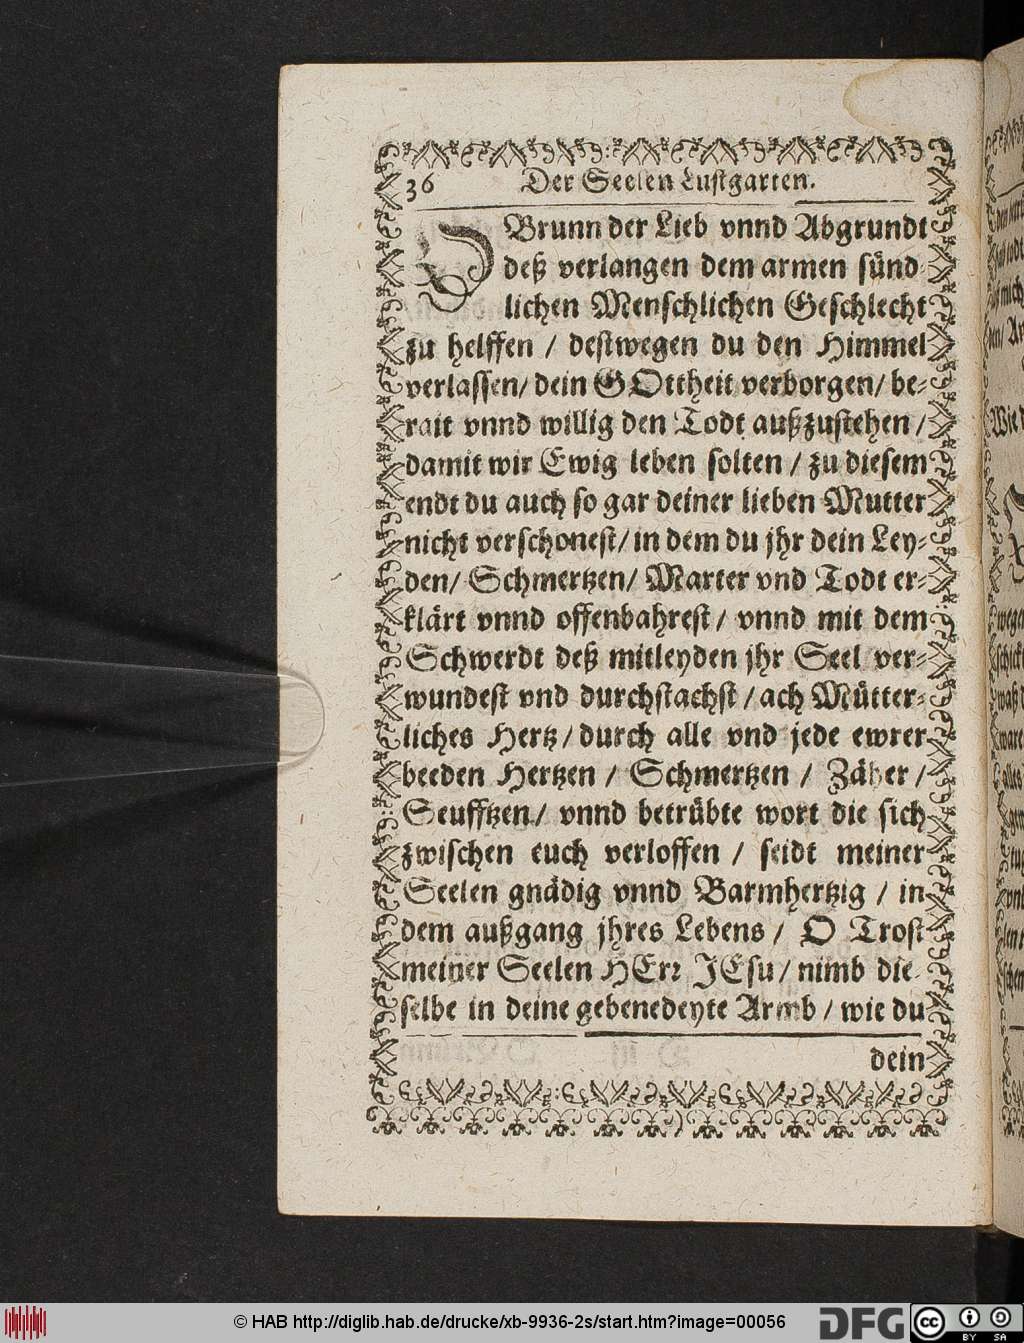 36 Der Seelen Lustgarten.
O Brunn der Lieb vnnd Abgrundt
deß verlangen dem armen sünd-
lichen Menschlichen Geschlecht
zu helffen / destwegen du den Himmel
verlassen/ dein GOttheit verborgen/ be-
rait vnnd willig den Todt außzustehen /
damit wir Ewig leben solten / zu diesem
endt du auch so gar deiner lieben Mutter
nicht verschonest/ in dem du jhr dein Ley-
den/ Schmertzen/ Marter vnd Todt er-
klärt vnnd offenbahrest / vnnd mit dem
Schwerdt deß mitleyden jhr Seel ver-
wundest vnd durchstachst / ach Mütter-
liches Hertz / durch alle vnd jede ewrer
beeden Hertzen / Schmertzen / Zäher /
Seufftzen/ vnnd betrübte wort die sich
zwischen euch verloffen / seidt meiner
Seelen gnädig vnnd Barmhertzig / in
dem außgang jhres Lebens / O Trost
meiner Seelen HErr JEsu / nimb die-
selbe in deine gebenedeyte Armb / wie du
dein
© HAB http://diglib.hab.de/drucke/xb-9936-2s/start.htm?image=00056
DFG
CC BY SA